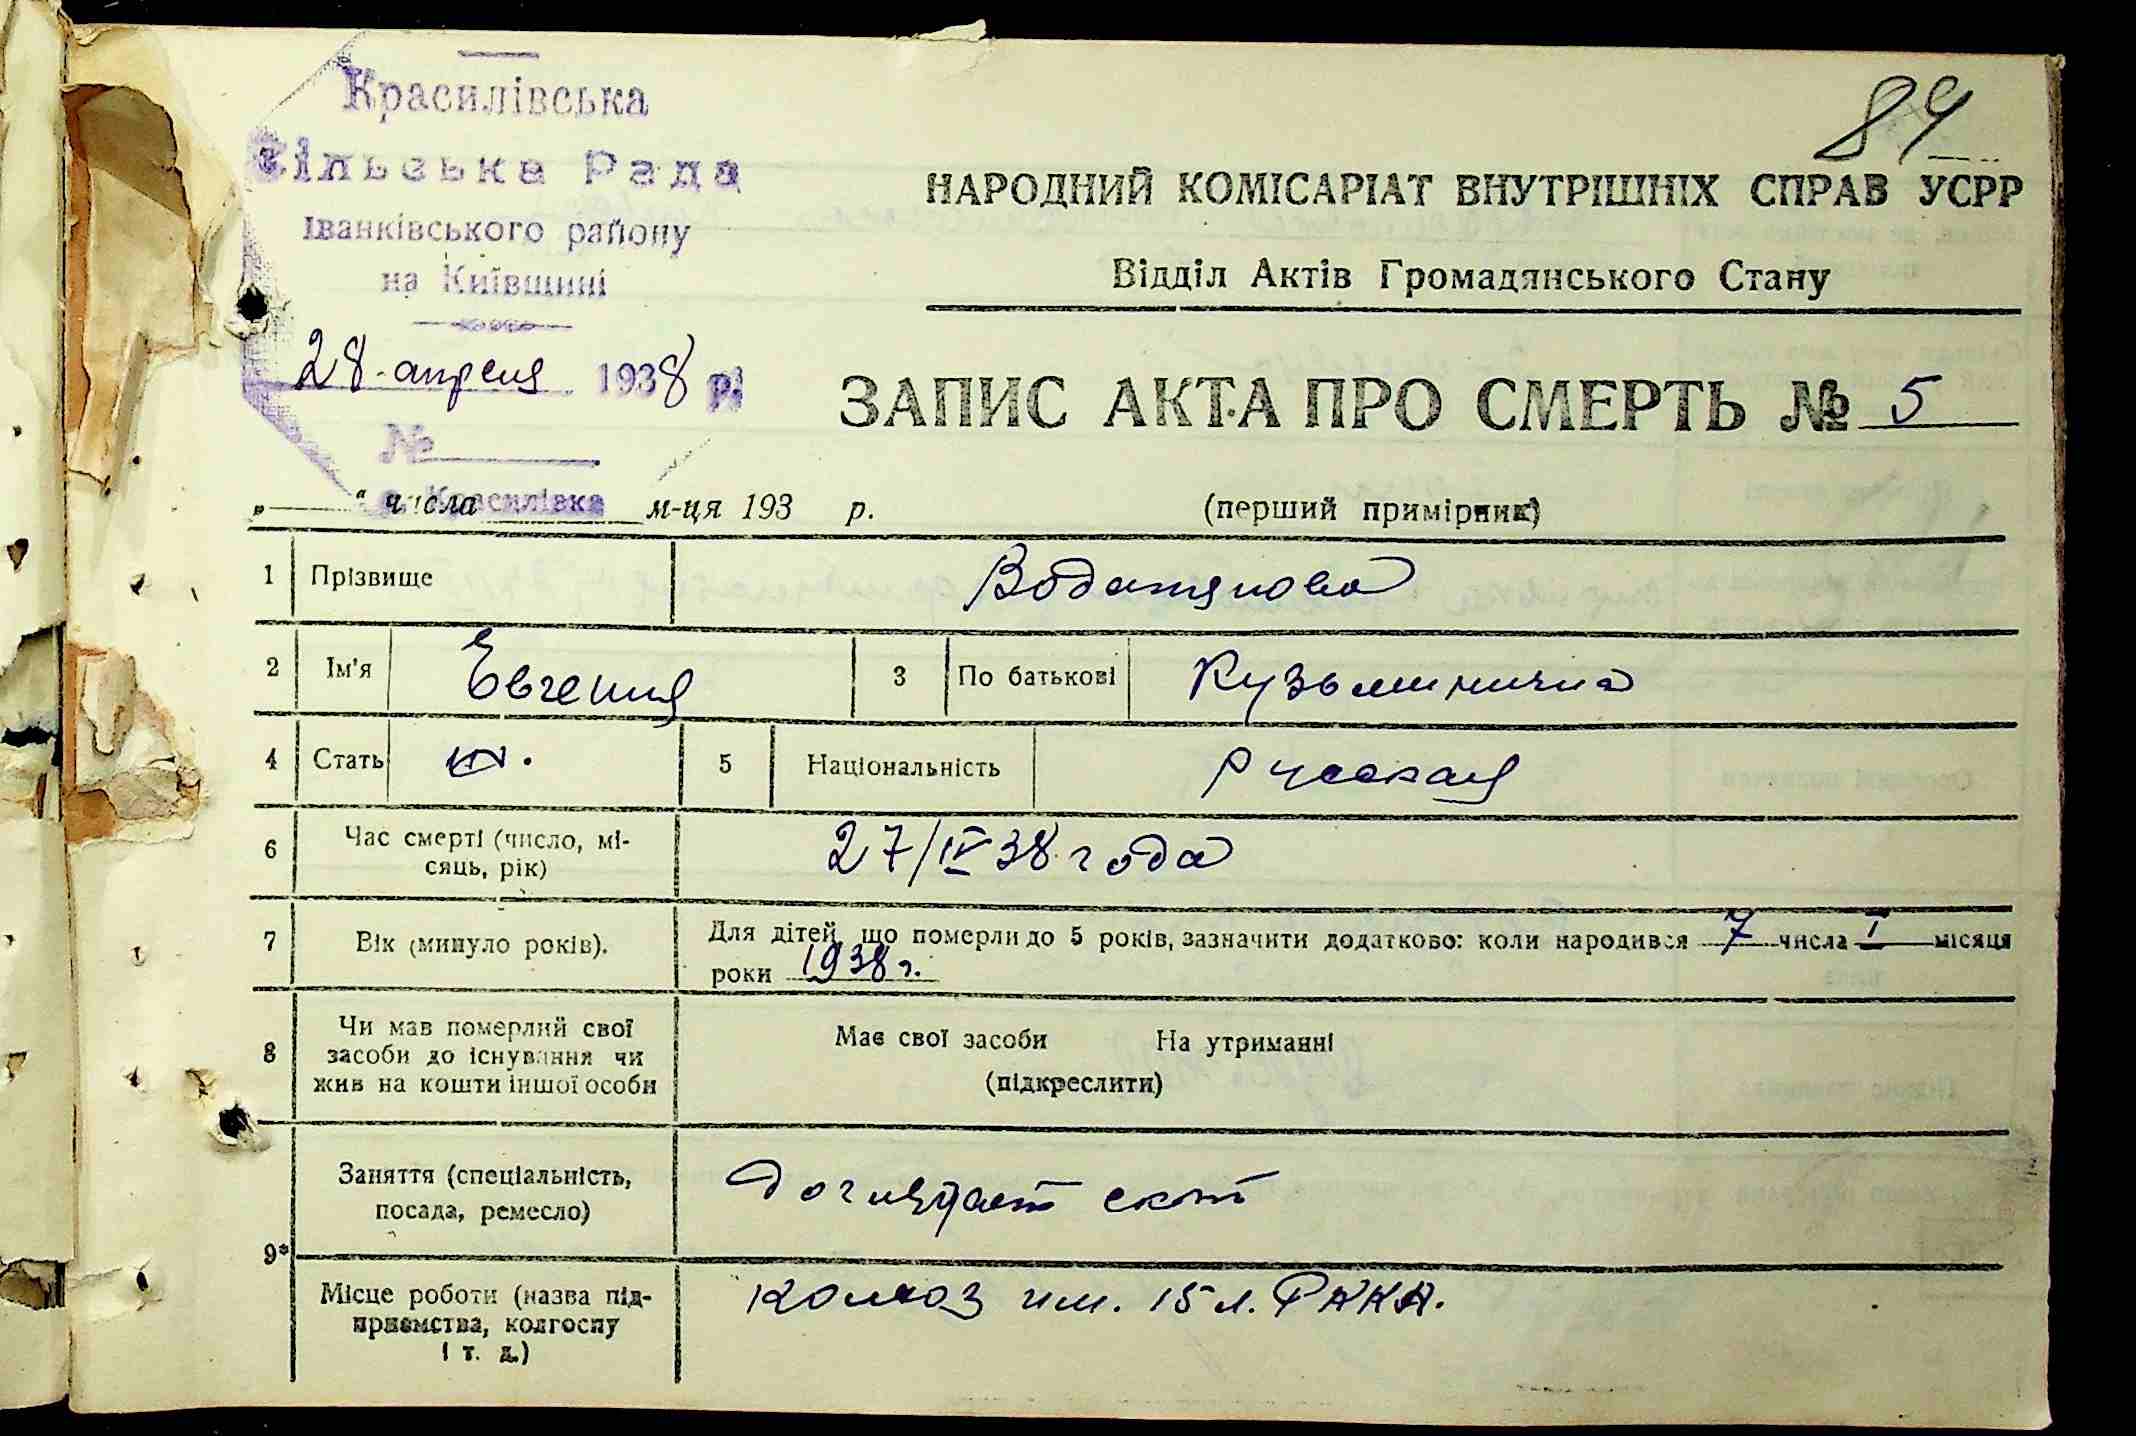 84
Красилівська
Сільська Рада
Іванківського району
на Київщині
28 апреля 1938 р.
№
с. Красилівка
НАРОДНИЙ КОМІСАРІАТ ВНУТРІШНІХ СПРАВ УСРР
Відділ Актів Громадянського Стану
ЗАПИС АКТА ПРО СМЕРТЬ № 5
„ “ числа м-ця 193 р. (перший примірник)
1 Прізвище Водотянова
2 Ім'я Евгения 3 По батькові Кузьминична
4 Стать ж. 5 Національність русская
6 Час смерті (число, мі-
сяць, рік) 27/IV 38 года
7 Вік (минуло років). Для дітей, що померли до 5 років, зазначити додатково: коли народився 7 числа I місяця
роки 1938 г.
8 Чи мав померлий свої
засоби до існування чи
жив на кошти іншої особи
Має свої засоби На утриманні
(підкреслити)
9*
Заняття (спеціальність,
посада, ремесло) скот
Місце роботи (назва під-
приємства, колгоспу
і т. д.)
колхоз им. 15 л. РККА.